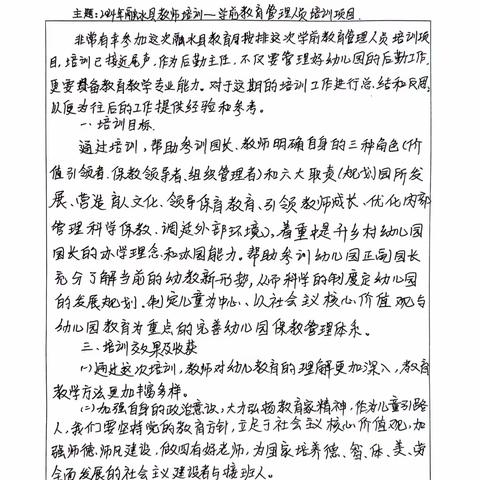 主题:2024年融水县教师培训—学前教育管理人员培训项目
非常有幸参加这次融水县教育局按排这次学前教育管理人员培训项
目,培训已接近尾声,作为后勤主任,不仅要管理好幼儿园的后勤工作,
更要具备教育教学专业能力。对于这期的培训工作进行总结和反思,
以便为往后的工作提供经验和参考。
一、培训目标
通过培训,帮助参训园长、教师明确自身的三种角色(价
值引领者、保教领导者、组织管理者)和六大职责(规划园所发
展、营造育人文化、领导保育教育、引领教师成长、优化内部
管理科学保教、调适外部环境),着重提升乡村幼儿园
园长的办学理念和办园能力。帮助参训幼儿园正副园长
充分了解当前的幼教新形势,从而科学的制度定幼儿园
的发展规划。制定儿童为中心、以社会主义核心价值观与
幼儿园教育为重点的完善幼儿园保教管理体系。
三、培训效果及收获
(一)通过这次培训,教师对幼儿教育的理解更加深入,教育
教学方法更加丰富多样。
(二)加强自身的政治意识,大力弘扬教育家精神,作为儿童引路
人,我们要坚持党的教育方针,立足于社会主义核心价值观,加
强师德、师风建设,做四有好老师,为国家培养德、智、体、美、劳
全面发展的社会主义建设者与接班人。